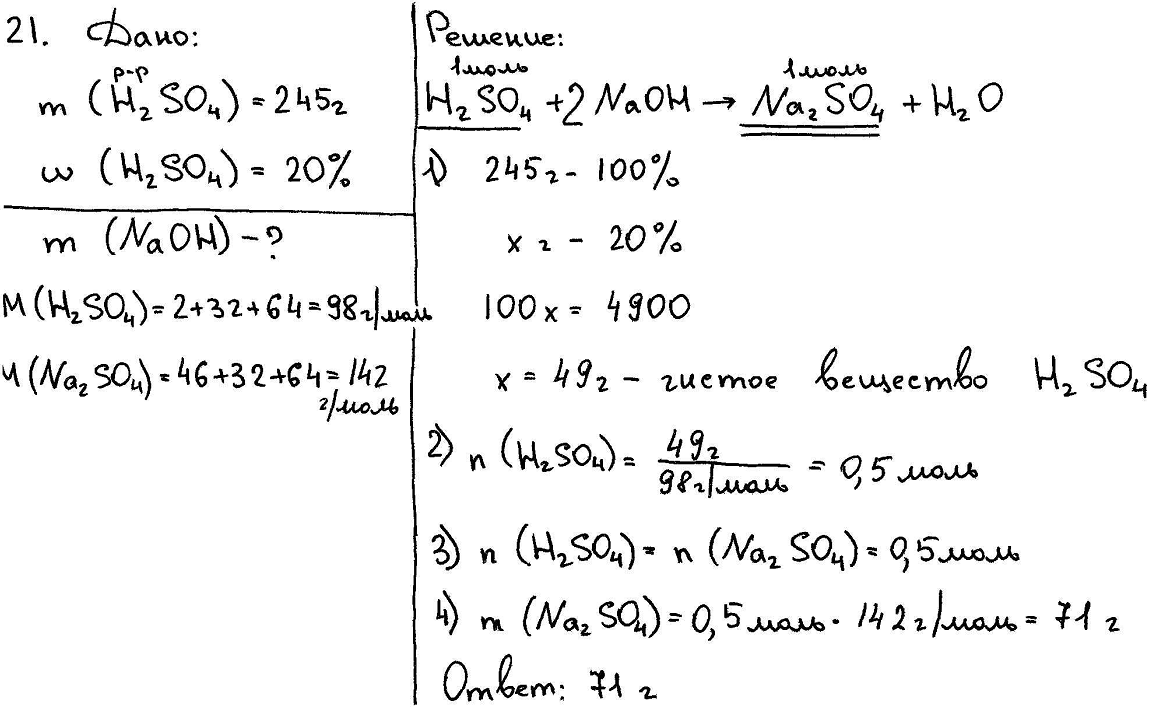 21. Дано:
р-р
m (H₂SO₄) = 245г
w (H₂SO₄) = 20%
m (NaOH) - ?
M (H₂SO₄) = 2+32+64 = 98г/моль
M (Na₂SO₄) = 46+32+64 = 142
г/моль
Решение:
1моль 1моль
H₂SO₄ + 2NaOH → Na₂SO₄ + H₂O
1) 245г - 100%
x г - 20%
100x = 4900
x = 49г - чистое вещество H₂SO₄
2) n (H₂SO₄) = 49г / 98г/моль = 0,5 моль
3) n (H₂SO₄) = n (Na₂SO₄) = 0,5моль
4) m (Na₂SO₄) = 0,5моль · 142г/моль = 71 г
Ответ: 71 г